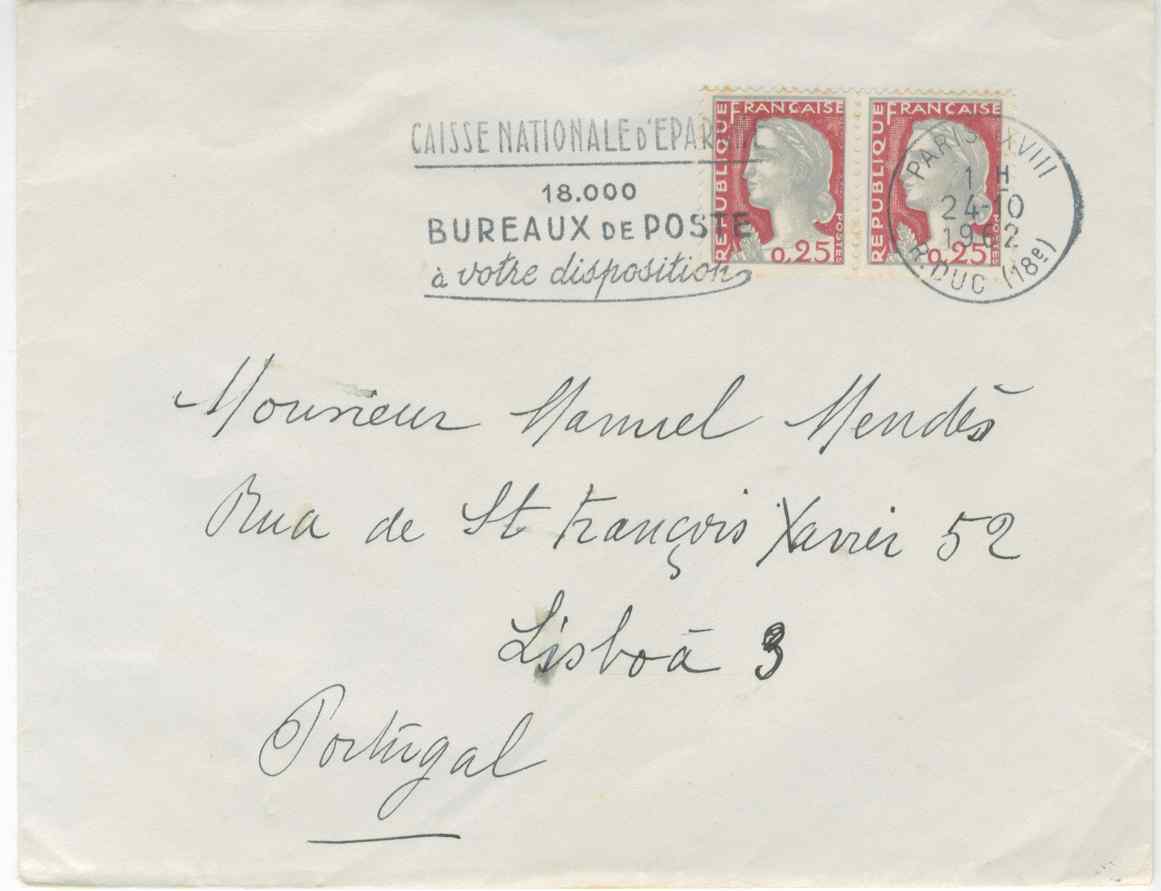 CAISSE NATIONALE D'EPAR
18.000
BUREAUX DE POSTE
à votre disposition
REPUBLIQUE FRANCAISE
0,25
POSTES
REPUBLIQUE FRANCAISE
0,25
POSTES
PARIS XVIII
1 H
24-10
1962
R. DUC (18e)
Monsieur Manuel Mendès
Rua de St François Xavier 52
Lisboã 3
Portugal